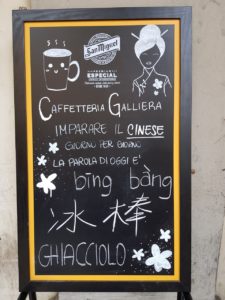 San Miguel
ESPECIAL
CAFFETTERIA GALLIERA
IMPARARE IL CINESE
GIORNO PER GIORNO
LA PAROLA DI OGGI E'
bīng bàng
冰棒
GHIACCIOLO